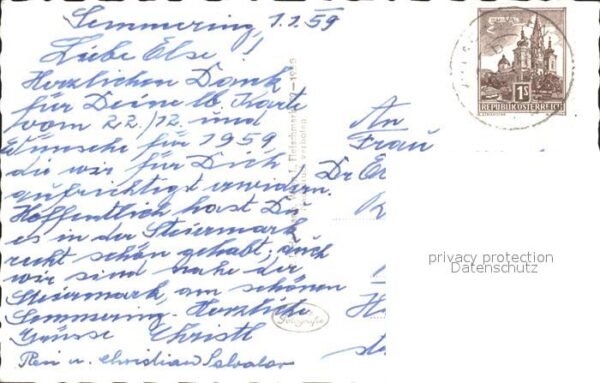 Semmering, 1.1.59
Liebe Else!
Herzlichen Dank
für Deine lb. Karte
vom 22./12. und
Wünsche für 1959
die wir für Dich
aufrichtigst erwidern.
Hoffentlich hast Du
es in der Steiermark
recht schön gehabt; auch
wir sind nahe der
Steiermark, am schönen
Semmering. Herzliche
Grüsse Christl
u. Christian Salvator
1S
REPUBLIK ÖSTERREICH
An
Frau
Dr
privacy protection
Datenschutz